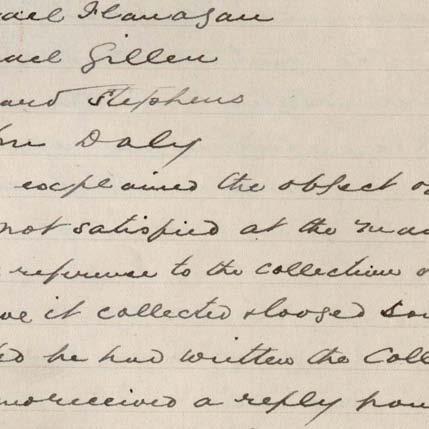 ael Flanagan
ael Gillen
ard Stephens
hn Daly
explained the object o
not satisfied at the man
reference to the collection o
ve it collected & lodged Som
ed he had written the Coll
received a reply pow